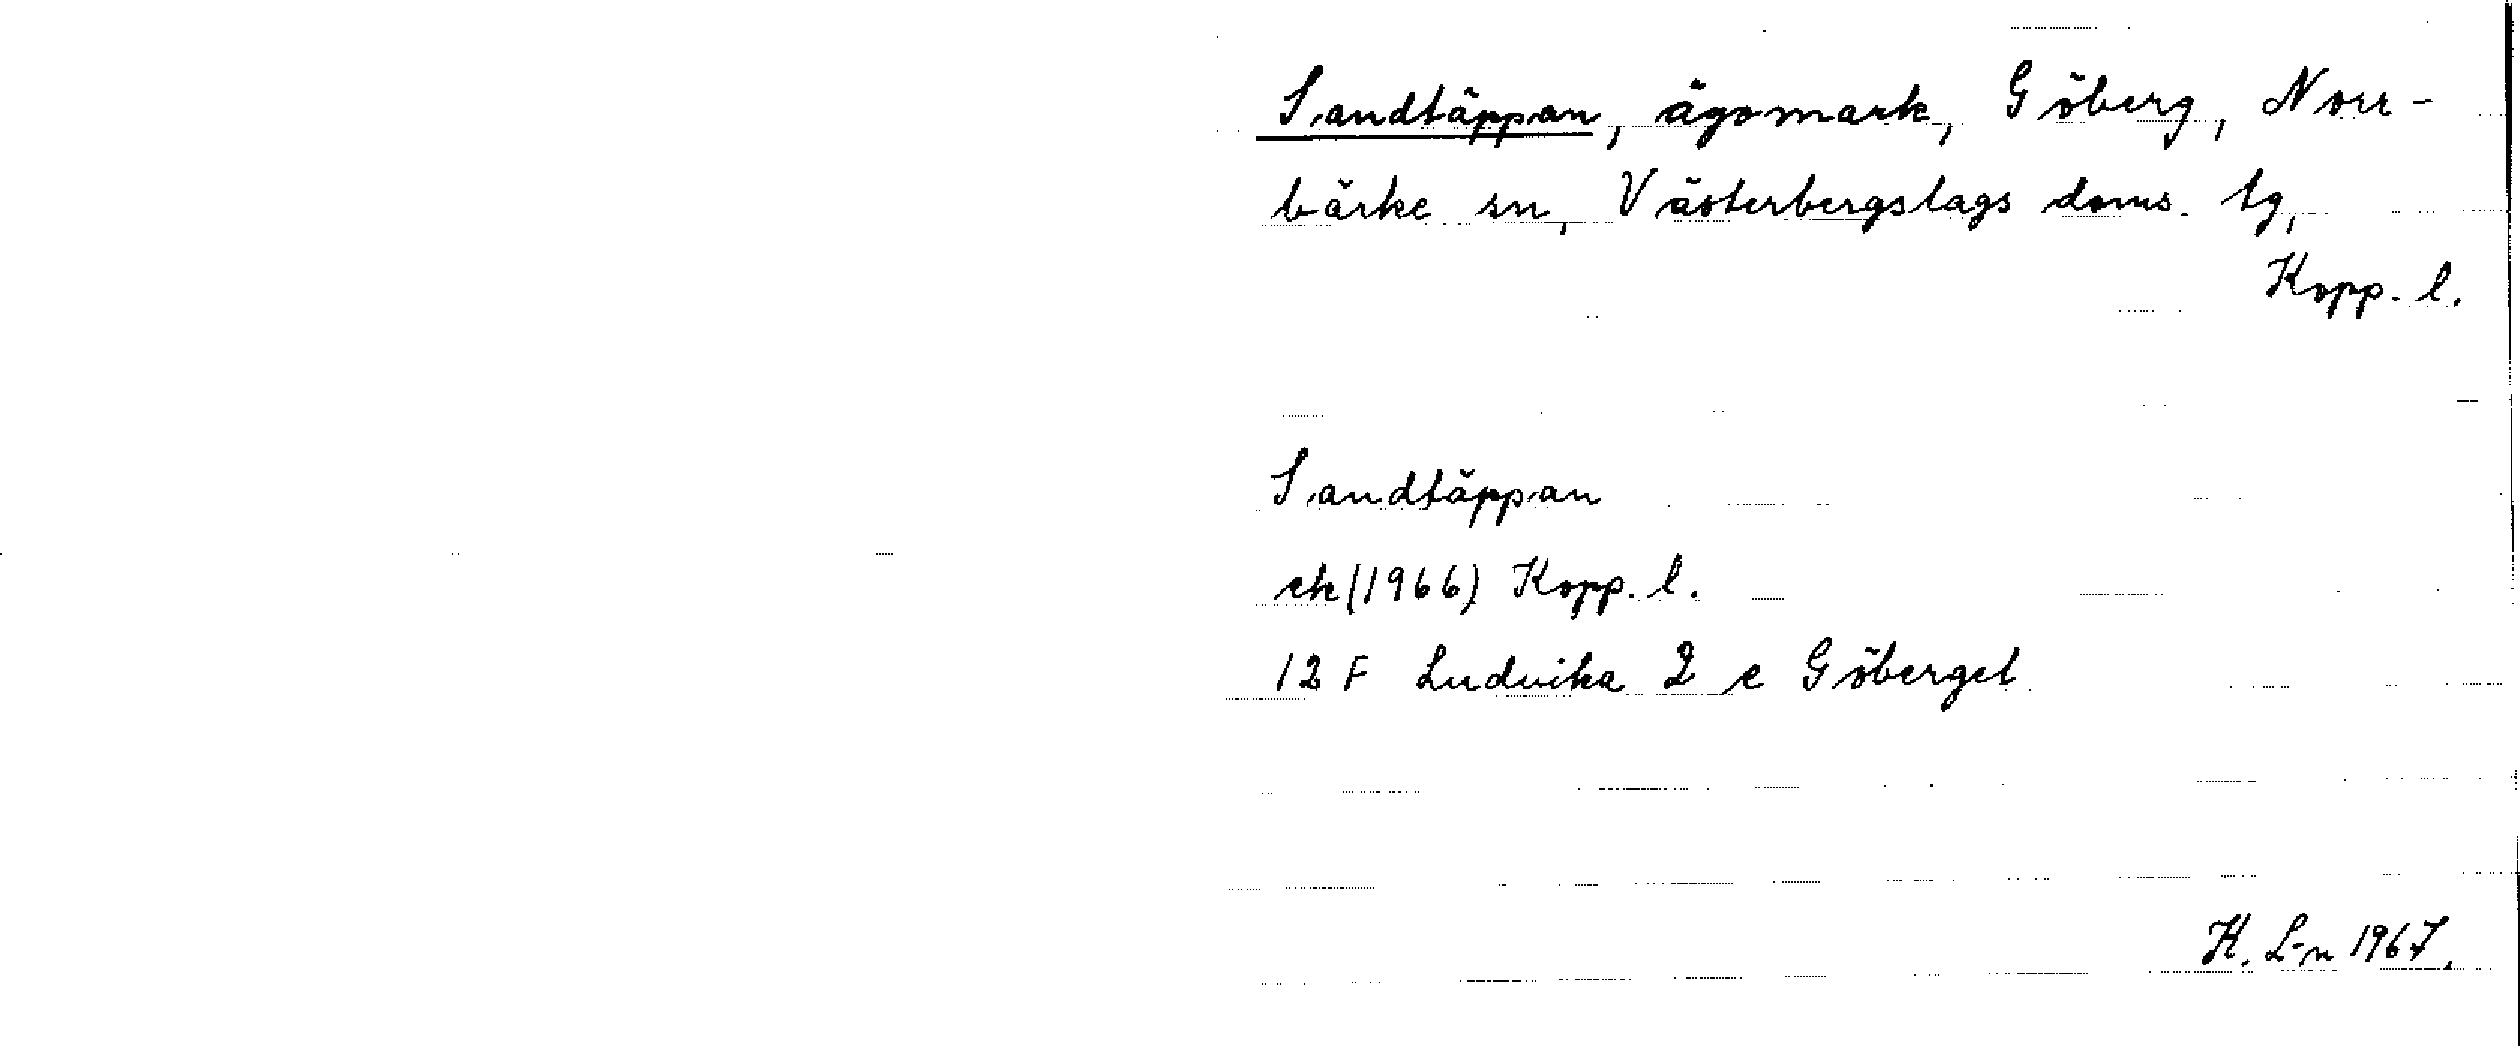 Sandtäppan, ägomark, Göberg, Norr-
bärke sn, Västerbergslags doms. tg,
Kopp. l.
Sandtäppan
ek (1966) Kopp. l.
12 F Ludvika 2 e Göberget
H. L-n 1967.